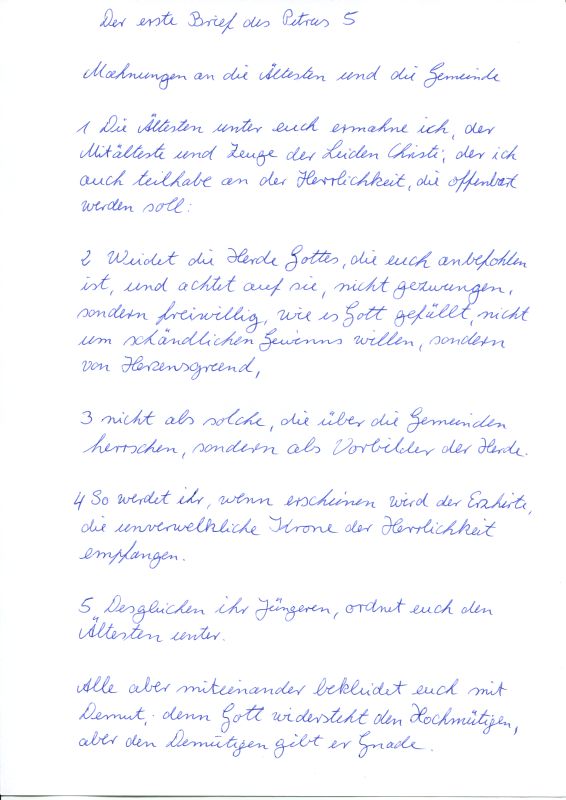 Der erste Brief des Petrus 5
Mahnungen an die Ältesten und die Gemeinde
1 Die Ältesten unter euch ermahne ich, der
Mitälteste und Zeuge der Leiden Christi, der ich
auch teilhabe an der Herrlichkeit, die offenbart
werden soll:
2 Weidet die Herde Gottes, die euch anbefohlen
ist, und achtet auf sie, nicht gezwungen,
sondern freiwillig, wie es Gott gefällt, nicht
um schändlichen Gewinns willen, sondern
von Herzensgrund,
3 nicht als solche, die über die Gemeinden
herrschen, sondern als Vorbilder der Herde.
4 So werdet ihr, wenn erscheinen wird der Erzhirte,
die unverwelkliche Krone der Herrlichkeit
empfangen.
5 Desgleichen ihr Jüngeren, ordnet euch den
Ältesten unter.
Alle aber miteinander bekleidet euch mit
Demut; denn Gott widersteht den Hochmütigen,
aber den Demütigen gibt er Gnade.